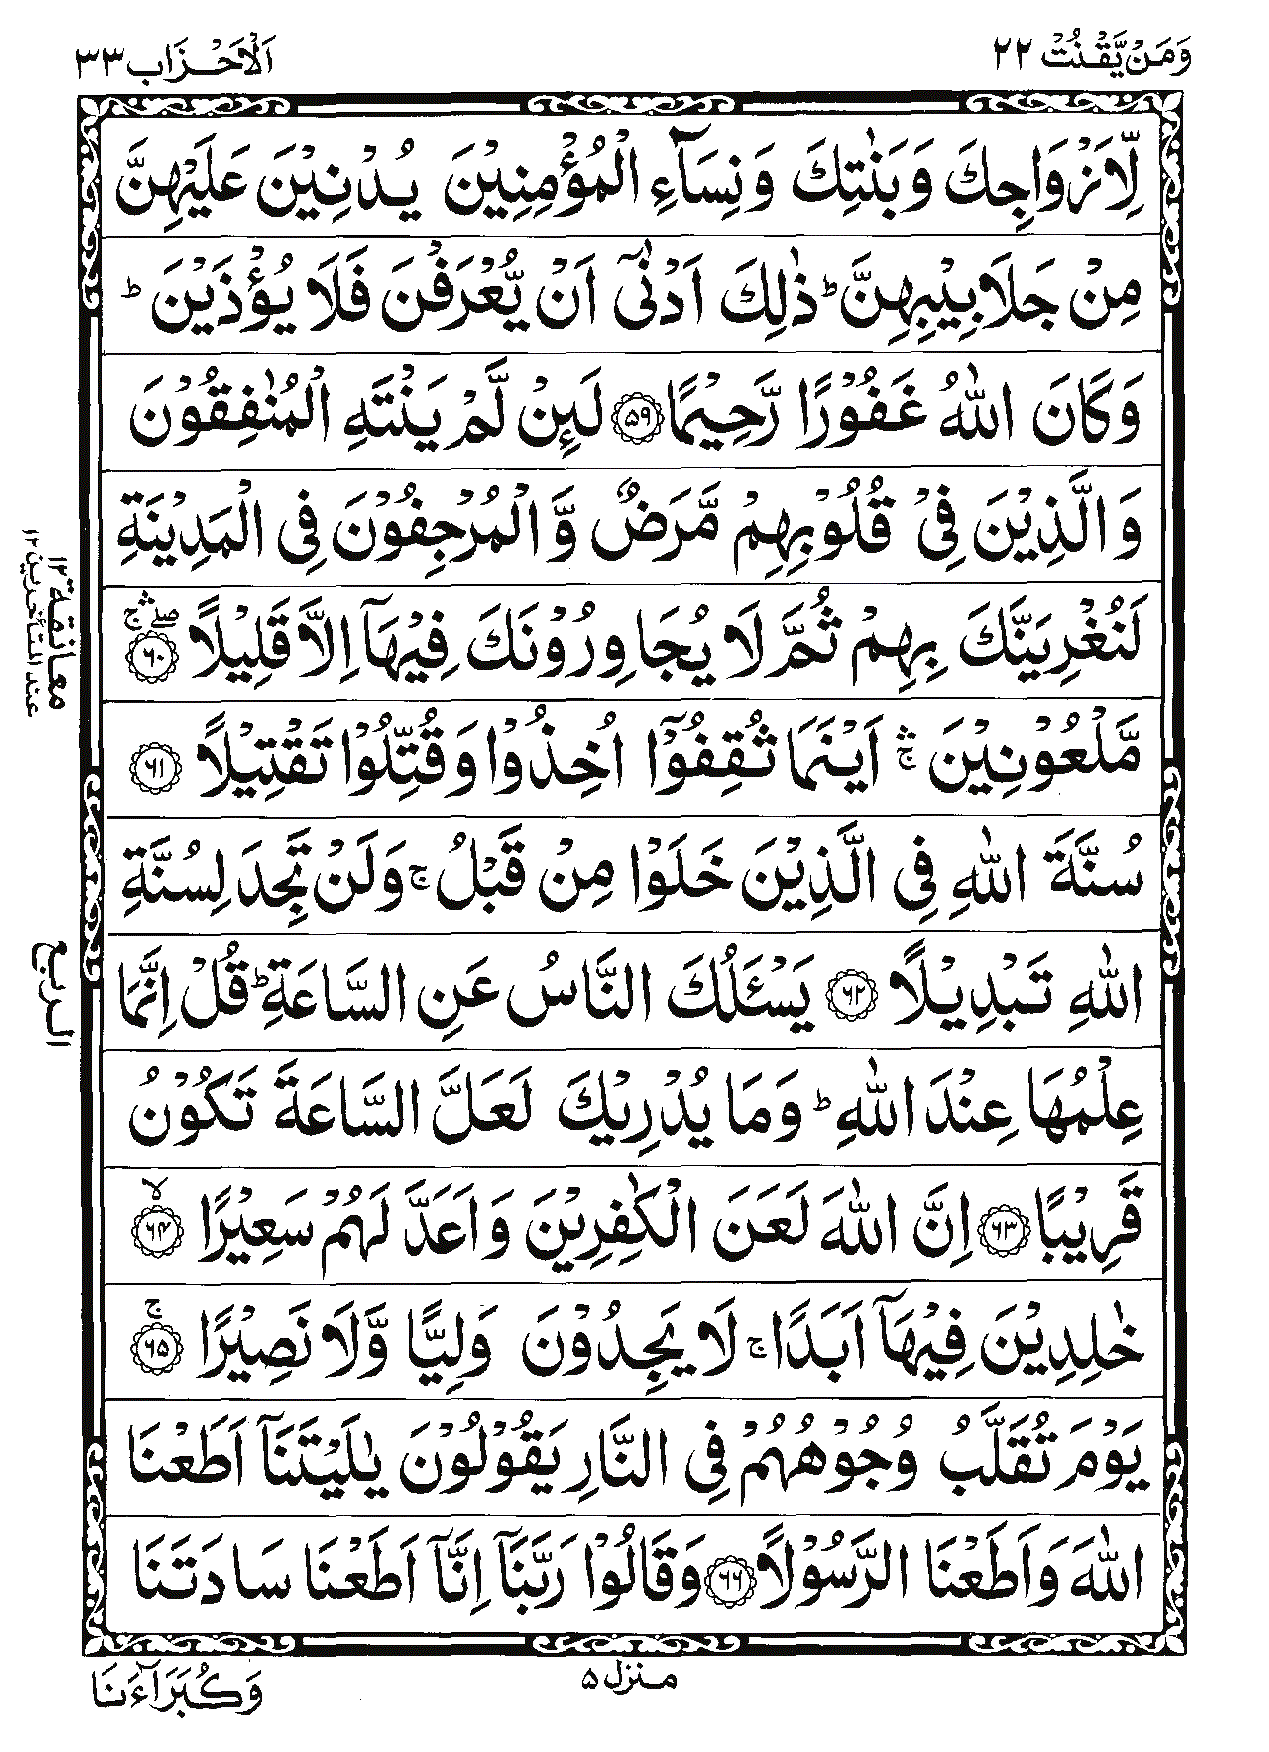 وَمَنْ يَّقْنُتْ ٢٢
اَلْاَحْزَاب ٣٣
لِّاَزْوَاجِكَ وَبَنٰتِكَ وَنِسَآءِ الْمُؤْمِنِيْنَ يُدْنِيْنَ عَلَيْهِنَّ
مِنْ جَلَابِيْبِهِنَّ ؕ ذٰلِكَ اَدْنٰٓى اَنْ يُّعْرَفْنَ فَلَا يُؤْذَيْنَ ؕ
وَكَانَ اللّٰهُ غَفُوْرًا رَّحِيْمًا ﴿۵۹﴾ لَئِنْ لَّمْ يَنْتَهِ الْمُنٰفِقُوْنَ
وَالَّذِيْنَ فِيْ قُلُوْبِهِمْ مَّرَضٌ وَّالْمُرْجِفُوْنَ فِى الْمَدِيْنَةِ
لَنُغْرِيَنَّكَ بِهِمْ ثُمَّ لَا يُجَاوِرُوْنَكَ فِيْهَآ اِلَّا قَلِيْلًا ۛۖۚ ﴿۶۰﴾
معانقة ١٢
عند المتأخرين ١٢
مَّلْعُوْنِيْنَ ۛۚ اَيْنَمَا ثُقِفُوْٓا اُخِذُوْا وَقُتِّلُوْا تَقْتِيْلًا ﴿۶۱﴾
سُنَّةَ اللّٰهِ فِى الَّذِيْنَ خَلَوْا مِنْ قَبْلُ ۚ وَلَنْ تَجِدَ لِسُنَّةِ
اللّٰهِ تَبْدِيْلًا ﴿۶۲﴾ يَسْـَٔلُكَ النَّاسُ عَنِ السَّاعَةِ ؕ قُلْ اِنَّمَا
الربع
عِلْمُهَا عِنْدَ اللّٰهِ ؕ وَمَا يُدْرِيْكَ لَعَلَّ السَّاعَةَ تَكُوْنُ
قَرِيْبًا ﴿۶۳﴾ اِنَّ اللّٰهَ لَعَنَ الْكٰفِرِيْنَ وَاَعَدَّ لَهُمْ سَعِيْرًا ۙ ﴿۶۴﴾
خٰلِدِيْنَ فِيْهَآ اَبَدًا ۚ لَا يَجِدُوْنَ وَلِيًّا وَّلَا نَصِيْرًا ۚ ﴿۶۵﴾
يَوْمَ تُقَلَّبُ وُجُوْهُهُمْ فِى النَّارِ يَقُوْلُوْنَ يٰلَيْتَنَآ اَطَعْنَا
اللّٰهَ وَاَطَعْنَا الرَّسُوْلَا ﴿۶۶﴾ وَقَالُوْا رَبَّنَآ اِنَّآ اَطَعْنَا سَادَتَنَا
منزل ۵
وَكُبَرَآءَنَا